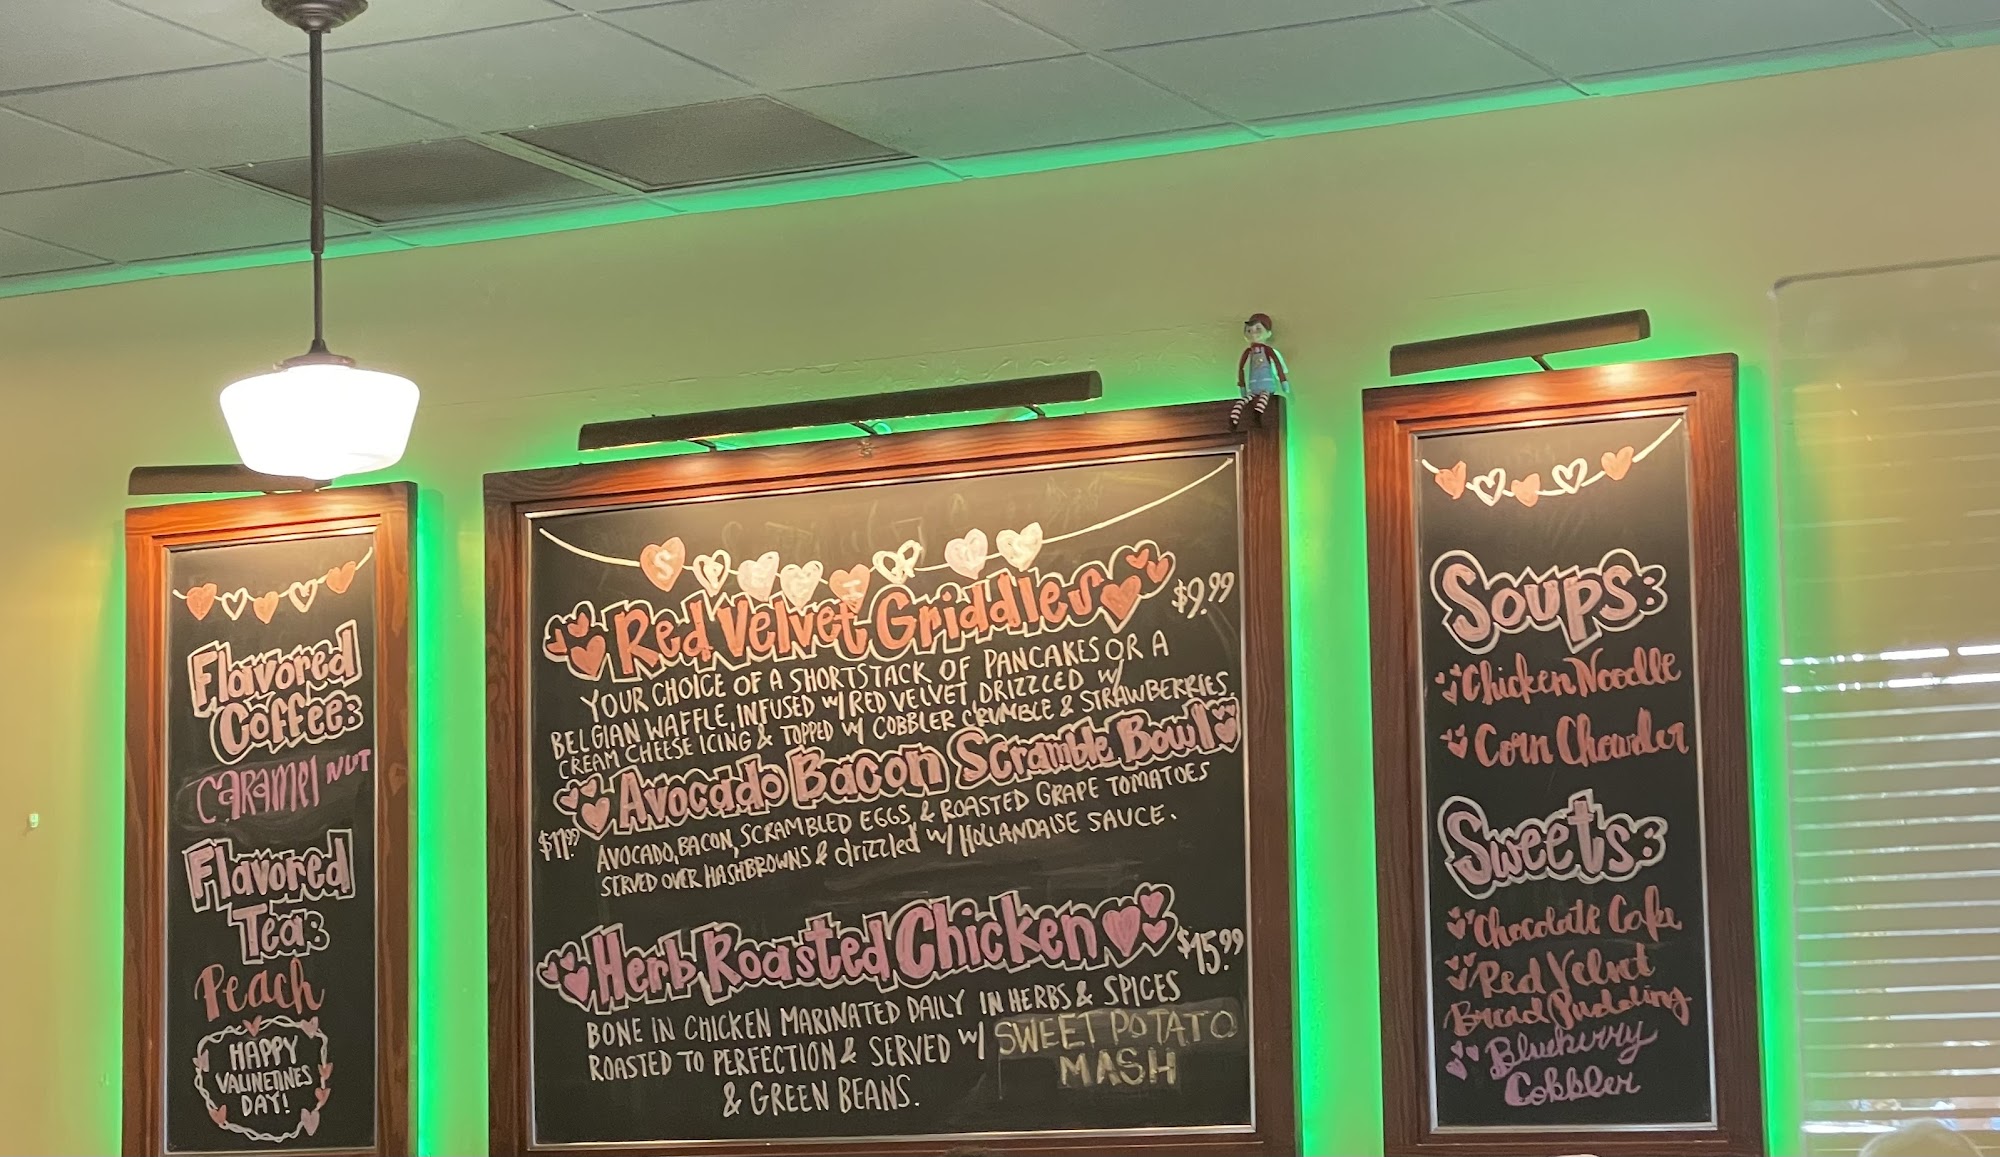 Flavored
Coffee:
Caramel NUT
Flavored
Tea:
Peach
HAPPY
VALINETINES
DAY!
SPECIALS
Red Velvet Griddles $9.99
YOUR CHOICE OF A SHORTSTACK OF PANCAKES OR A
BELGIAN WAFFLE, INFUSED W/ RED VELVET, DRIZZLED W/
CREAM CHEESE ICING & TOPPED W/ COBBLER CRUMBLE & STRAWBERRIES.
Avocado Bacon Scramble Bowl
$11.99 AVOCADO, BACON, SCRAMBLED EGGS, & ROASTED GRAPE TOMATOES
SERVED OVER HASHBROWNS & drizzled W/ HOLLANDAISE SAUCE.
Herb Roasted Chicken $15.99
BONE IN CHICKEN MARINATED DAILY IN HERBS & SPICES
ROASTED TO PERFECTION & SERVED W/ SWEET POTATO
MASH
& GREEN BEANS.
Soups:
Chicken Noodle
Corn Chowder
Sweets:
Chocolate Cake
Red Velvet
Bread Pudding
Blueberry
Cobbler